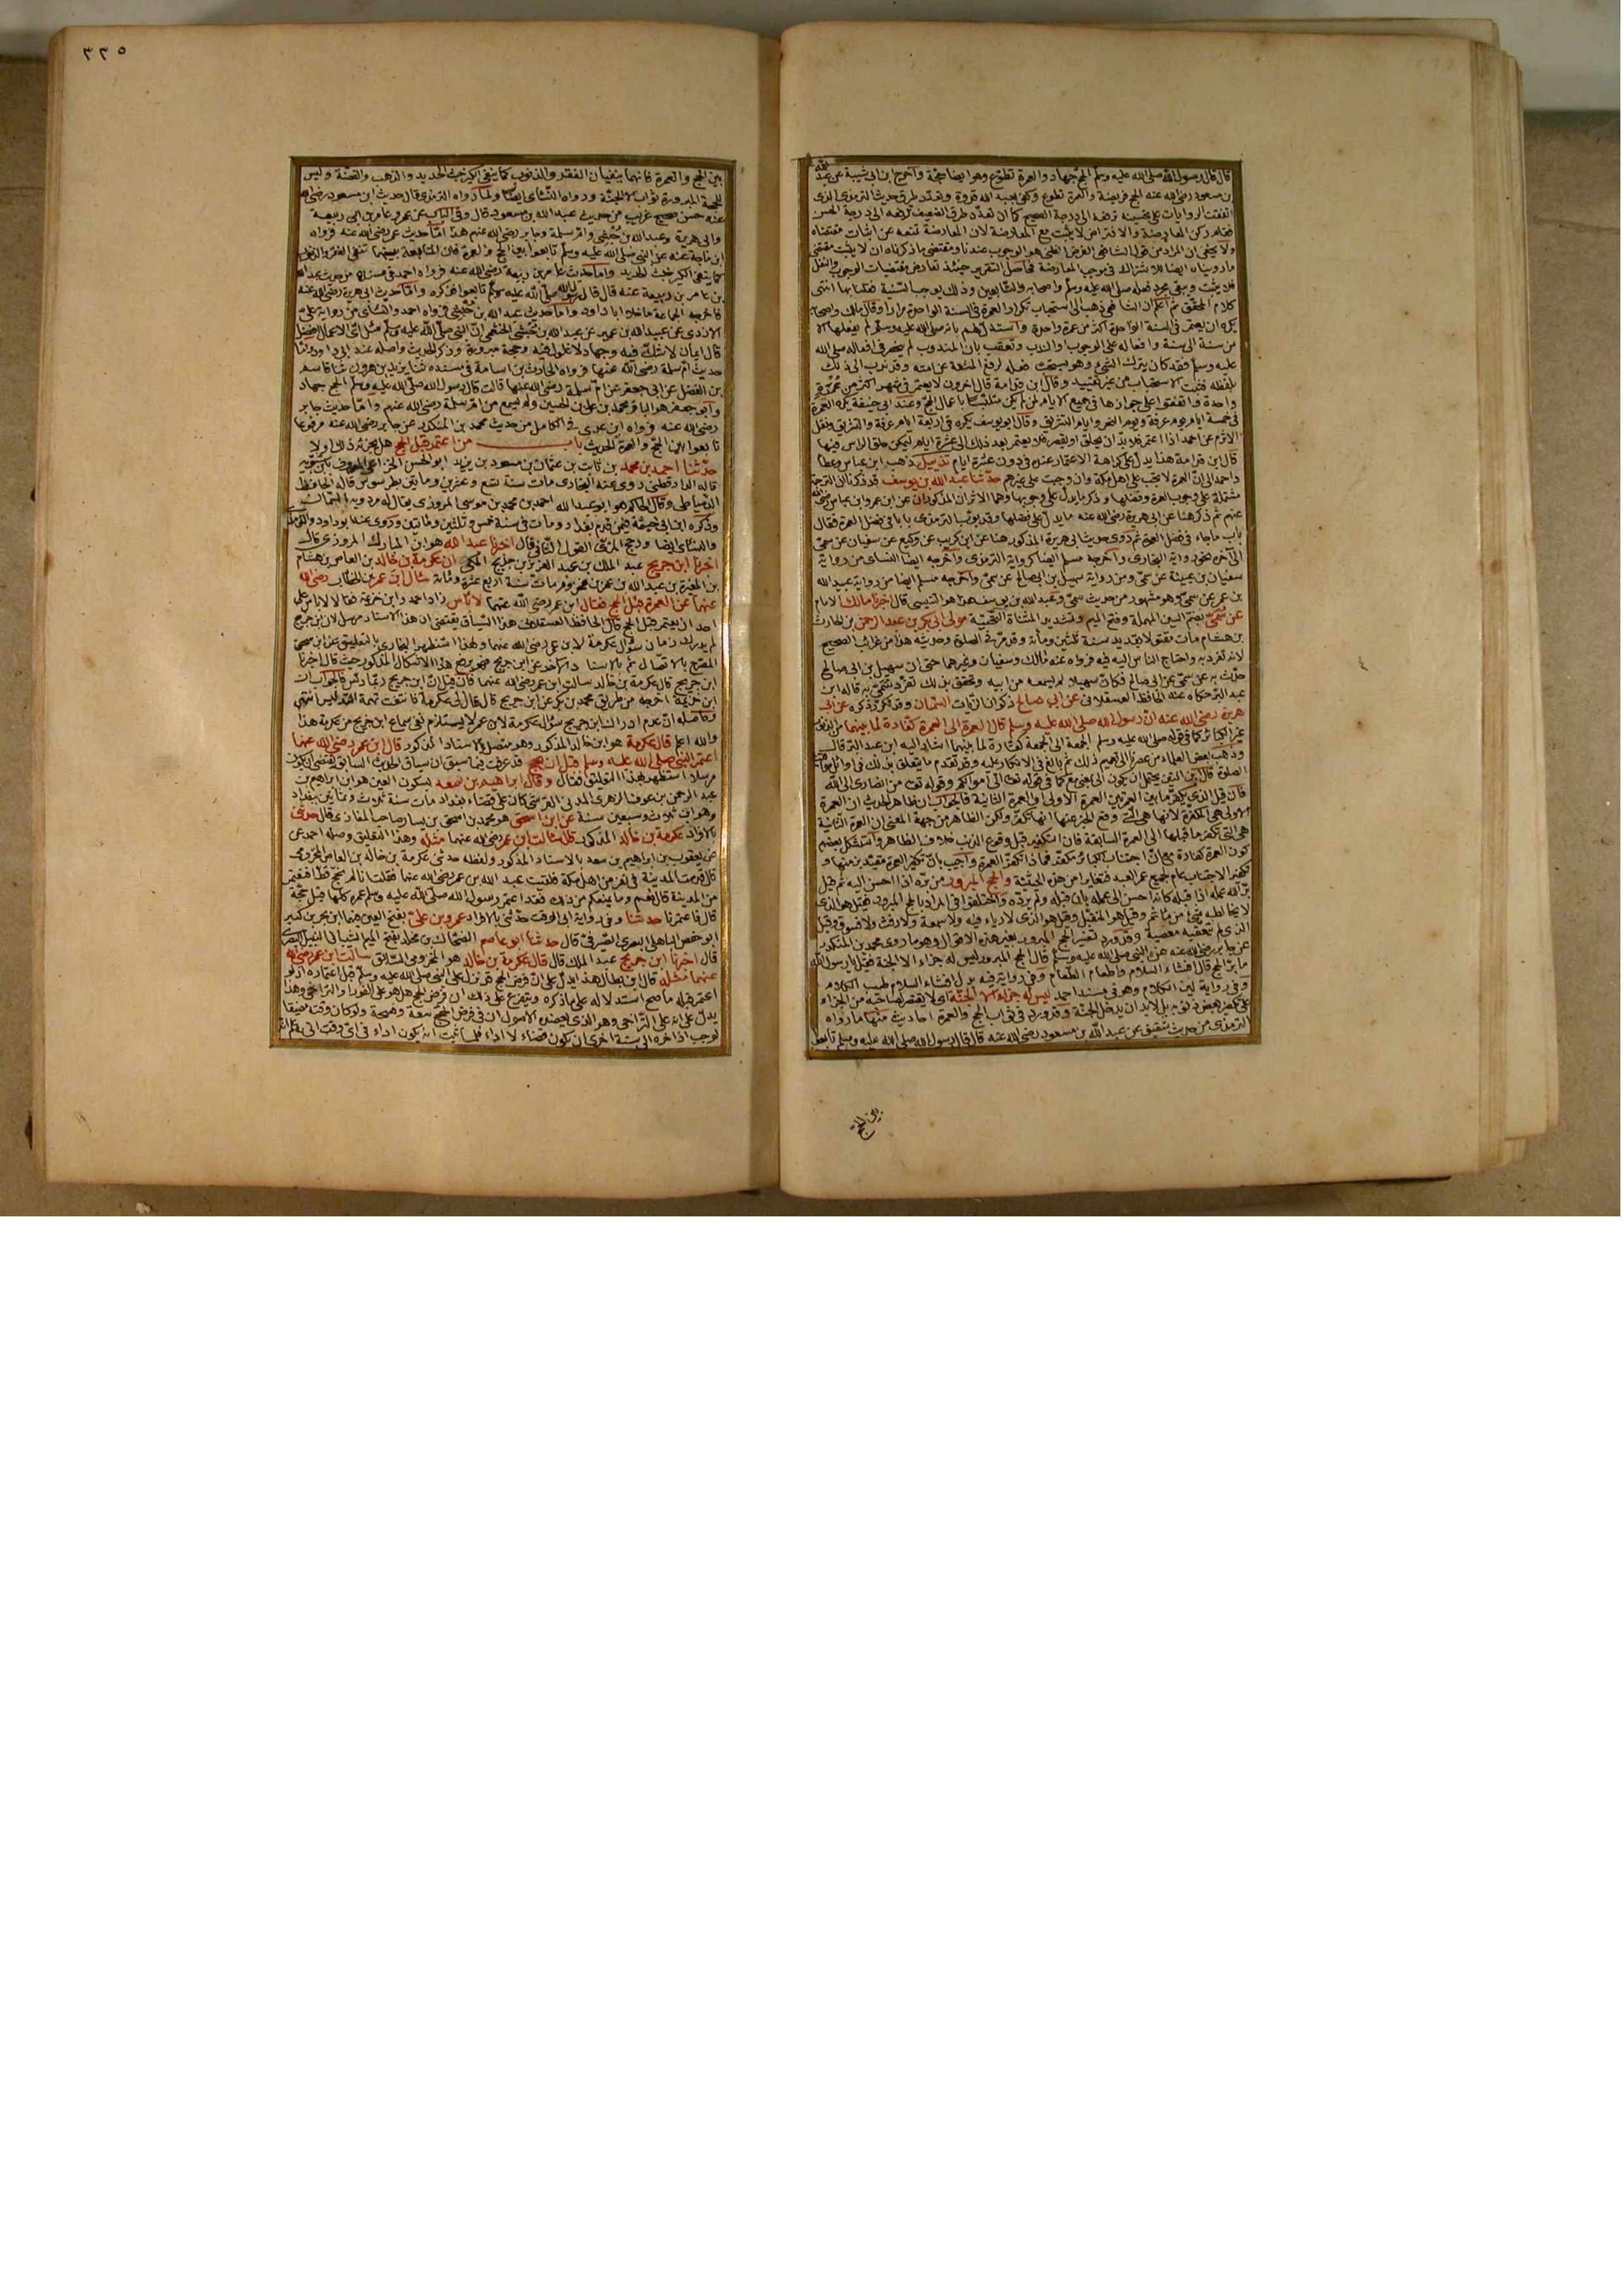 قال قال رسول الله صلى الله عليه وسلم الحج جهاد والعمرة تطوع وهو ايضا حجة واخرج ابن ابي شيبة عن عبد الله
بن مسعود رضي الله عنه الحج فريضة والعمرة تطوع وكفى بعبد الله قدوة وتعدد طرق حديث الترمذي الذي
اتفقت الروايات على تحسينه ترفعه الى درجة الصحيح كما ان تعدد طرق الضعيف ترفعه الى درجة الحسن
فقام ركن المعارضة والافتراض لا يثبت مع المعارضة لان المعارضة تمنعه عن اثبات مقتضاه
ولا يخفى ان المراد من قول الشافعي الفرض الظني هو الوجوب عندنا ومقتضى ما ذكرناه ان لا يثبت مقتضى
ما رويناه ايضا للاشتراك في موجب المعارضة فحاصل التقرير حينئذ تعارض مقتضيات الوجوب والنفل
فلا يثبت ويبقى مجرد فعله صلى الله عليه وسلم واصحابه والتابعين وذلك يوجب السنية فقلنا بها انتهى
كلام المحقق ثم اعلم ان الشافعي ذهب الى استحباب تكرار العمرة في السنة الواحدة مرارا وقال مالك واصحابه
يكره ان يعتمر في السنة الواحدة اكثر من عمرة واحدة واستدل لهم بانه صلى الله عليه وسلم لم يفعلها الا
من سنة الى سنة وافعاله على الوجوب او الندب وتعقب بان المندوب لم ينحصر في افعاله صلى الله
عليه وسلم فقد كان يترك الشئ وهو يستحب فعله لرفع المشقة عن امته وقد ندب الى ذلك
بلفظه فثبت الاستحباب من غير تقييد وقال ابن قدامة قال اخرون لا يعتمر في شهر اكثر من عمرة
واحدة واتفقوا على جوازها في جميع الايام لمن لم يكن متلبسا باعمال الحج وعند ابي حنيفة يكره العمرة
في خمسة ايام يوم عرفة ويوم النحر وايام التشريق وقال ابو يوسف يكره في اربعة ايام عرفة والتشريق ونقل
الاثرم عن احمد اذا اعتمر فلا بد ان يحلق او يقصر فلا يعتمر بعد ذلك الى عشرة ايام ليمكن حلق الراس فيها
قال ابن قدامة هذا يدل على كراهة الاعتمار عنده في دون عشرة ايام تذييل ذهب ابن عباس وعطا
واحمد الى ان العمرة لا تجب على اهل مكة وان وجبت على غيرهم حدثنا عبد الله بن يوسف قد ذكرنا ان الترجمة
مشتملة على وجوب العمرة وفضلها وذكر ما يدل على وجوبها وهما الاثران المذكوران عن ابن عمر وابن عباس رضي الله
عنهم ثم ذكر هنا عن ابي هريرة رضي الله عنه ما يدل على فضلها وقد بوب الترمذي بابا في فضل العمرة فقال
باب ما جاء في فضل العمرة ثم روى حديث ابي هريرة المذكور هنا عن ابن كريب عن وكيع عن سفيان عن سمي
الى آخره نحو رواية البخاري واخرجه مسلم ايضا كرواية الترمذي واخرجه ايضا النسائي من رواية
سفيان بن عيينة عن سمي ومن رواية سهيل بن ابي صالح عن سمي واخرجه مسلم ايضا من رواية عبيد الله
بن عمر عن سمي وهو مشهور من حديث سمي وعبد الله بن يوسف هذا هو التنيسي قال اخبرنا مالك الامام
عن سمي بضم السين المهملة وفتح الميم وتشديد المثناة التحتية مولى ابي بكر بن عبد الرحمن بن الحارث
بن هشام مات مقتولا بقديد سنة ثلثين ومائة وقد مر في الصلوة وحديثه هذا من غرائب الصحيح
لانه تفرد به واحتاج الناس اليه فيه فرواه عنه مالك وسفيان وغيرهما حتى ان سهيل بن ابي صالح
حدث به عن سمي عن ابي صالح فكان سهيلا لم يسمعه من ابيه وتحقق بذلك تفرد سمي به قاله ابن
عبد البر حكاه عنه الحافظ العسقلاني عن ابي صالح ذكوان الزيات السمان وقد تكرر ذكره عن ابي
هريرة رضي الله عنه ان رسول الله صلى الله عليه وسلم قال العمرة الى العمرة كفارة لما بينهما من الذنوب
غير الكبائر كما في قوله صلى الله عليه وسلم الجمعة الى الجمعة كفارة لما بينهما اشار اليه ابن عبد البر قال
وذهب بعض العلماء من عصرنا الى تعميم ذلك ثم بالغ في الانكار عليه وقد تقدم ما يتعلق بذلك في اوائل مواقيت
الصلوة قال ابن التين يحتمل ان يكون الى بمعنى مع كما في قوله تعالى الى اموالكم وقوله تعالى من انصاري الى الله
فان قيل الذي يكفر ما بين العمرتين العمرة الاولى او العمرة الثانية فالجواب ان ظاهر الحديث ان العمرة
الاولى هي المكفرة لانها هي التي وقع الخبر عنها انها تكفر ولكن الظاهر من جهة المعنى ان العمرة الثانية
هي التي تكفر ما قبلها الى العمرة السابقة فان التكفير قبل وقوع الذنب خلاف الظاهر واستشكل بعضهم
كون العمرة كفارة مع ان اجتناب الكبائر مكفر فماذا تكفره العمرة واجيب بان تكفير العمرة مقيد بزمنها و
تكفير الاجتناب عام لجميع عمر العبد فتغايرا من هذه الحيثية والحج المبرور من بره اذا احسن اليه ثم قيل
بر الله عمله اذا قبله كانه احسن الى عمله بان قبله ولم يرده واختلفوا في المراد بالحج المبرور فقيل هو الذي
لا يخالطه شئ من مأثم وقيل هو المتقبل وقيل هو الذي لا رياء فيه ولا سمعة ولا رفث ولا فسوق وقيل
الذي لم تتعقبه معصية وقد ورد تفسير الحج المبرور بغير هذه الاقوال وهو ما روى محمد بن المنكدر
عن جابر رضي الله عنه عن النبي صلى الله عليه وسلم قال الحج المبرور ليس له جزاء الا الجنة فقيل يا رسول الله
ما بر الحج قال افشاء السلام واطعام الطعام وفي رواية فيه بدل افشاء السلام طيب الكلام
وفي رواية لين الكلام وهو في مسند احمد ليس له جزاء الا الجنة اي لا يقتصر لصاحبه من الجزاء
على تكفير بعض ذنوبه بل لا بد ان يدخل الجنة وقد ورد في ثواب الحج والعمرة احاديث منها ما رواه
الترمذي من حديث شقيق عن عبد الله بن مسعود رضي الله عنه قال قال رسول الله صلى الله عليه وسلم تابعوا
بين الحج
٣٣٥
بين الحج والعمرة فانهما ينفيان الفقر والذنوب كما ينفي الكير خبث الحديد والذهب والفضة وليس
للحجة المبرورة ثواب الا الجنة ورواه النسائي ايضا ولما رواه الترمذي قال حديث ابن مسعود رضي الله
عنه حسن صحيح غريب من حديث عبد الله بن مسعود قال وفي الباب عن عمر وعامر بن ابي ربيعة
وابي هريرة وعبد الله بن حبشي وام سلمة وجابر رضي الله عنهم هذا اما حديث عمر رضي الله عنه فرواه
ابن ماجة عنه عن النبي صلى الله عليه وسلم تابعوا بين الحج والعمرة فان المتابعة بينهما تنفي الفقر والذنوب
كما ينفي الكير خبث الحديد واما حديث عامر بن ربيعة رضي الله عنه فرواه احمد في مسنده من حديث عبد الله
بن عامر بن ربيعة عنه قال قال رسول الله صلى الله عليه وسلم تابعوا فذكره واما حديث ابي هريرة رضي الله عنه
فاخرجه الجماعة ما خلا ابا داود واما حديث عبد الله بن حبشي فرواه احمد والنسائي من رواية علي
الازدي عن عبيد الله بن عمير عن عبد الله بن حبشي الخثعمي ان النبي صلى الله عليه وسلم سئل اي الاعمال افضل
قال ايمان لا شك فيه وجهاد لا غلول فيه وحجة مبرورة وذكر الحديث واصله عند ابي داود واما
حديث ام سلمة رضي الله عنها فرواه الحارث بن ابي اسامة في مسنده ثنا يزيد بن هرون ثنا قاسم
بن الفضل عن ابي جعفر عن ام سلمة رضي الله عنها قالت قال رسول الله صلى الله عليه وسلم الحج جهاد
وابو جعفر هو الباقر محمد بن علي بن الحسين ولم يسمع من ام سلمة رضي الله عنهم واما حديث جابر
رضي الله عنه فرواه ابن عدي في الكامل من حديث محمد بن المنكدر عن جابر رضي الله عنه مرفوعا
تابعوا بين الحج والعمرة الحديث باب من اعتمر قبل الحج هل يجزئه ذلك اولا
حدثنا احمد بن محمد بن ثابت بن عثمان بن مسعود بن يزيد ابو الحسن الخزاعي المعروف بابن شبويه
قاله الدارقطني روى عنه البخاري مات سنة تسع وعشرين ومائتين بطرسوس قاله الحافظ
الدمياطي وقال الحاكم هو ابو عبد الله احمد بن محمد بن موسى المروزي يقال له مردويه السمسار
وذكره ابن ابي خيثمة فيمن قدم بغداد ومات في سنة خمس وثلثين ومائتين وروى عنه ابو داود والترمذي
والنسائي ايضا ورجح المزي القول الثاني قال اخبرنا عبد الله هو ابن المبارك المروزي قال
اخبرنا ابن جريج عبد الملك بن عبد العزيز بن جريج المكي ان عكرمة بن خالد بن العاص بن هشام
بن المغيرة بن عبد الله بن عمر بن مخزوم مات سنة اربع عشرة ومائة سأل ابن عمر بن الخطاب رضي الله
عنهما عن العمرة قبل الحج فقال ابن عمر رضي الله عنهما لا بأس زاد احمد وابن خزيمة فقالا لا بأس على
احد ان يعتمر قبل الحج قال الحافظ العسقلاني هذا السياق يقتضي ان هذا الاسناد مرسل لان ابن جريج
لم يدرك زمان سؤال عكرمة لابن عمر رضي الله عنهما ولهذا استظهر البخاري بالتعليق عن ابن اسحق
المصرح بالاتصال ثم بالاسناد الآخر عن ابن جريج فهو يرفع هذا الاشكال المذكور حيث قال اخبرنا
ابن جريج قال عكرمة بن خالد سالت ابن عمر رضي الله عنهما فان قيل ان ابن جريج ربما دلس فالجواب ان
ابن خزيمة اخرجه من طريق محمد بن بكر عن ابن جريج قال قال لي عكرمة فانتفت تهمة التدليس انتهى
وحاصله ان عدم ادراك ابن جريج سؤال عكرمة لابن عمر لا يستلزم نفي سماع ابن جريج من عكرمة هذا
والله اعلم قال عكرمة هو ابن خالد المذكور وهو متصل بالاسناد المذكور قال ابن عمر رضي الله عنهما
اعتمر النبي صلى الله عليه وسلم قبل ان يحج قد عرفت فيما سبق ان سياق الحديث السابق يقتضي ان يكون
مرسلا استظهر بهذا التعليق فقال وقال ابراهيم بن سعد بسكون العين هو ابن ابراهيم بن
عبد الرحمن بن عوف الزهري المدني القرشي كان على قضاء بغداد مات سنة ثلاث وثمانين ببغداد
وهو ابن ثلاث وسبعين سنة عن ابن اسحق هو محمد بن اسحق بن يسار صاحب المغازي قال حدثني
بالافراد عكرمة بن خالد المذكور قال سالت ابن عمر رضي الله عنهما مثله وهذا التعليق وصله احمد عن
عن يعقوب بن ابراهيم بن سعد بالاسناد المذكور ولفظه حدثني عكرمة بن خالد بن العاص المخزومي
قال قدمت المدينة في نفر من اهل مكة فلقيت عبد الله بن عمر رضي الله عنهما فقلت انا لم نحج قط افنعتمر
من المدينة قال نعم وما يمنعكم من ذلك فقد اعتمر رسول الله صلى الله عليه وسلم عمره كلها قبل حجه
قال فاعتمرنا حدثنا وفي رواية ابي الوقت حدثني بالافراد عمرو بن علي بفتح العين فيهما ابن بحر بن كنيز
ابو حفص الباهلي البصري الصيرفي قال حدثنا ابو عاصم الضحاك بن مخلد بفتح الميم الشيباني النبيل البصري
قال اخبرنا ابن جريج عبد الملك قال قال عكرمة بن خالد هو المخزومي السابق سالت ابن عمر رضي الله
عنهما مثله قال ابن بطال هذا يدل على ان فرض الحج قد نزل على النبي صلى الله عليه وسلم قبل اعتماره اذ لو
اعتمر قبله ما صح استدلاله على ما ذكره ويتفرع على ذلك ان فرض الحج هل هو على الفور او التراخي وهذا
يدل على انه على التراخي وهو الذي تعضده الاصول ان في فرض الحج سعة وفسحة ولو كان وقته مضيقا
لوجب اذا اخره الى سنة اخرى ان يكون قضاء لا اداء فلما ثبت انه يكون اداء في اي وقت اتى به علم انه